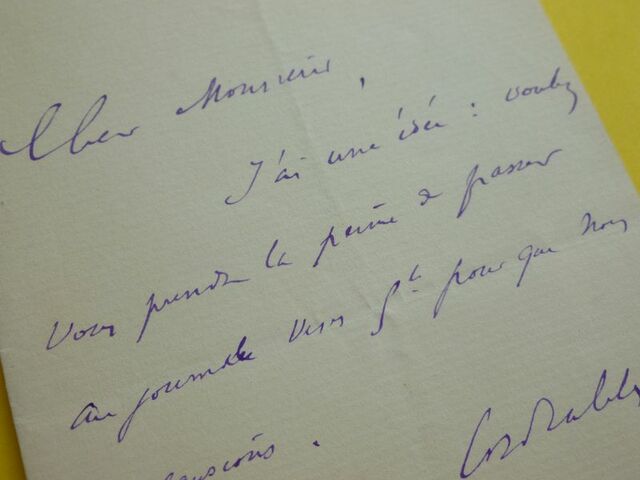 Cher Monsieur,
J'ai une idée : voulez
vous prendre la peine de passer
au journal vers 5h pour que nous
causions.